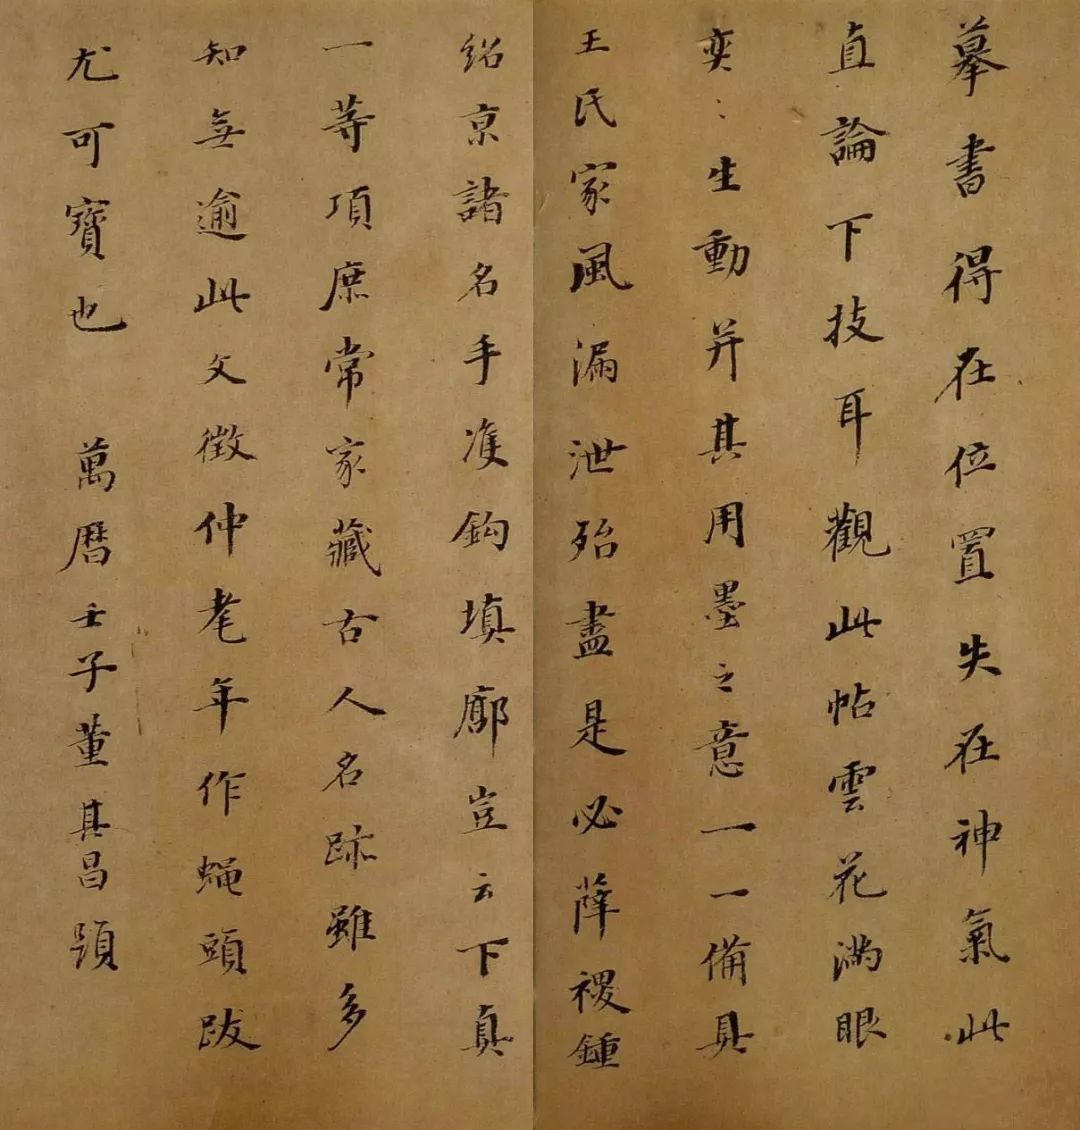 摹書得在位置失在神氣此
直論下技耳觀此帖雲花滿眼
奕〻生動并其用墨之意一一備具
王氏家風漏泄殆盡是必薛稷鍾
紹京諸名手准鈎填廓豈云下真
一等項庶常家藏古人名跡雖多
知無逾此文徵仲老年作蝇頭跋
尤可寶也 萬曆壬子董其昌題